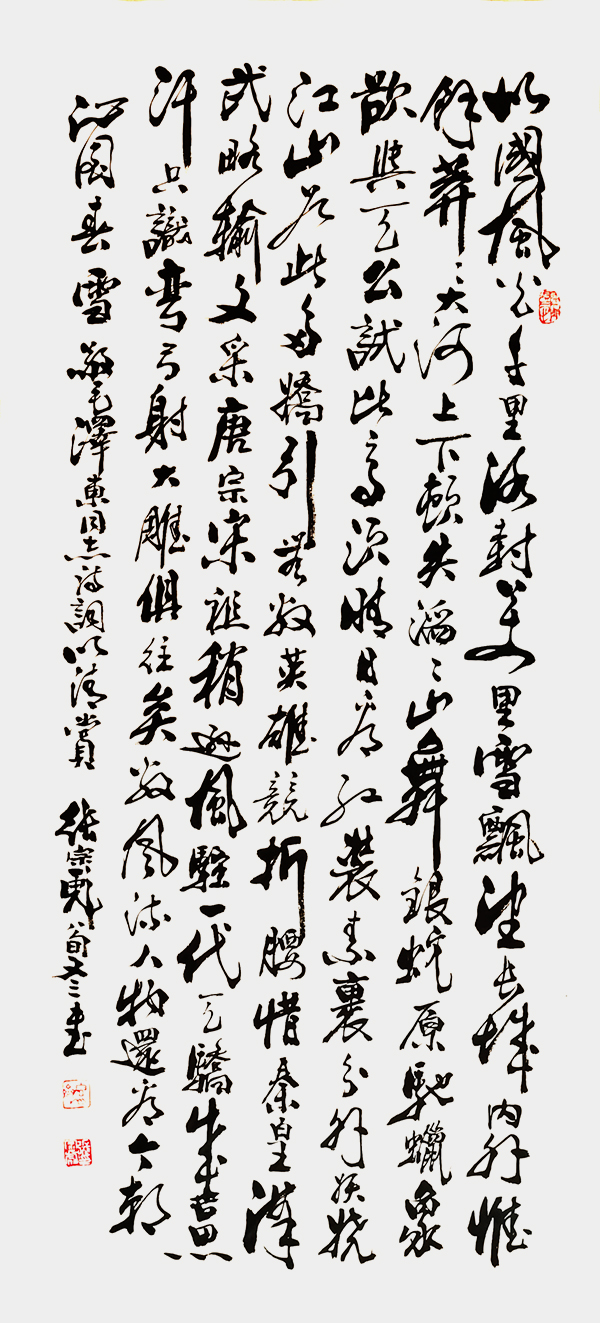 北國風光千里冰封萬里雪飄望長城内外惟
餘莽〻大河上下頓失滔〻山舞銀蛇原馳蠟象
欲與天公試比高須晴日看紅裝素裹分外妖嬈
江山如此多嬌引無數英雄競折腰惜秦皇漢
武略輸文采唐宗宋祖稍遜風騷一代天驕成吉思
汗只識彎弓射大雕俱往矣數風流人物還看今朝
沁園春雪 毛澤東同志詩詞以清賞 張宗 書